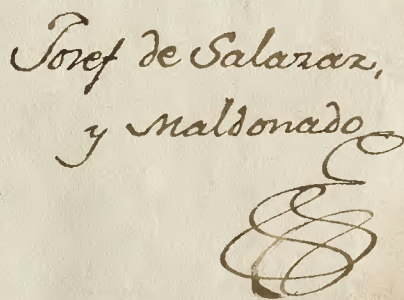 Josef de Salazar,
y Maldonado